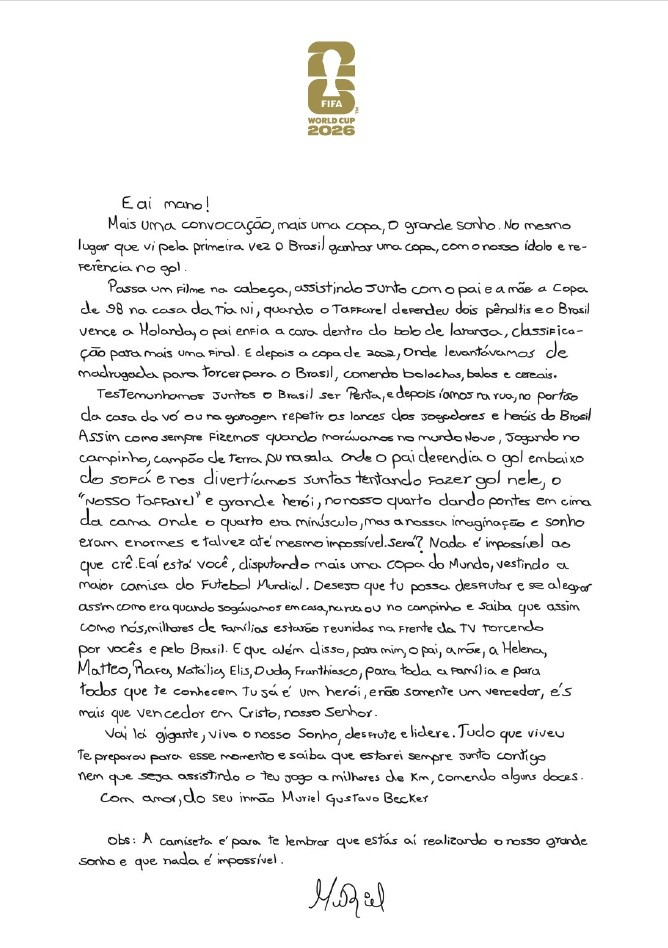 FIFA
WORLD CUP
2026
E aí mano!
Mais uma convocação, mais uma copa, O grande sonho. No mesmo
lugar que vi pela primeira vez o Brasil ganhar uma copa, com o nosso ídolo e re-
ferência no gol.
Passa um filme na cabeça, assistindo junto com o pai e a mãe a Copa
de 98 na casa da Tia Ni, quando o Taffarel defendeu dois pênaltis e o Brasil
vence a Holanda, o pai enfia a cara dentro do bolo de laranja, classifica-
ção para mais uma final. E depois a copa de 2002, Onde levantávamos de
madrugada para torcer para o Brasil, comendo bolachas, balas e cereais.
Testemunhamos juntos o Brasil ser Penta, e depois íamos na rua, no portão
da casa da vó ou na garagem repetir os lances dos jogadores e heróis do Brasil
Assim como sempre fizemos quando morávamos no mundo Novo, jogando no
campinho, campão de terra, ou na sala onde o pai defendia o gol embaixo
do sofá e nos divertíamos juntas tentando fazer gol nele, o
"Nosso Taffarel" e grande herói, no nosso quarto dando pontes em cima
da cama onde o quarto era minúsculo, mas a nossa imaginação e sonho
eram enormes e talvez até mesmo impossível. Será? Nada é impossível ao
que crê. E aí está você, disputando mais uma copa do Mundo, vestindo a
maior camisa do Futebol Mundial. Desejo que tu possa desfrutar e se alegrar
assim como era quando jogávamos em casa, na rua ou no campinho e saiba que assim
como nós, milhares de famílias estarão reunidas na frente da TV torcendo
por vocês e pelo Brasil. E que além disso, para mim, o pai, a mãe, a Helena,
Matteo, Rafa, Natália, Elis, Duda, Franthiesco, para toda a família e para
todos que te conhecem Tu já é um herói, e não somente um vencedor, és
mais que vencedor em Cristo, nosso Senhor.
Vai lá gigante, viva o nosso Sonho, desfrute e lidere. Tudo que viveu
te preparou para esse momento e saiba que estarei sempre junto contigo
nem que seja assistindo o teu jogo a milhares de Km, comendo alguns doces.
Com amor, do seu irmão Muriel Gustavo Becker
Obs: A camiseta é para te lembrar que estás aí realizando o nosso grande
sonho e que nada é impossível.
Muriel